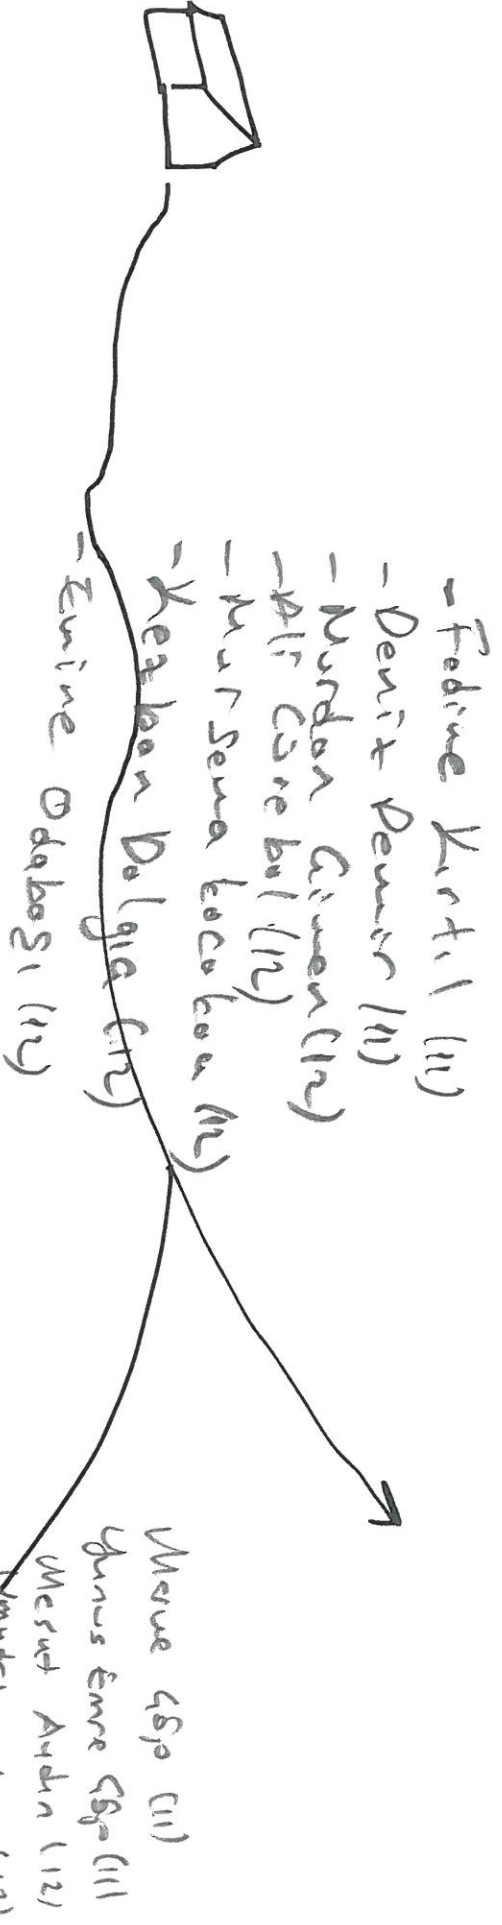 - Fadime Kırtıl (11)
- Deniz Demir (11)
- Nurdan Gimen (12)
- Ali Cane bal (12)
- Nursema Kocakoa (12)
- Kezban Dalgıa (12)
- Emine Odabaşı (12)
Merve (11)
Yunus Emre (11)
Mesut Aydın (12)